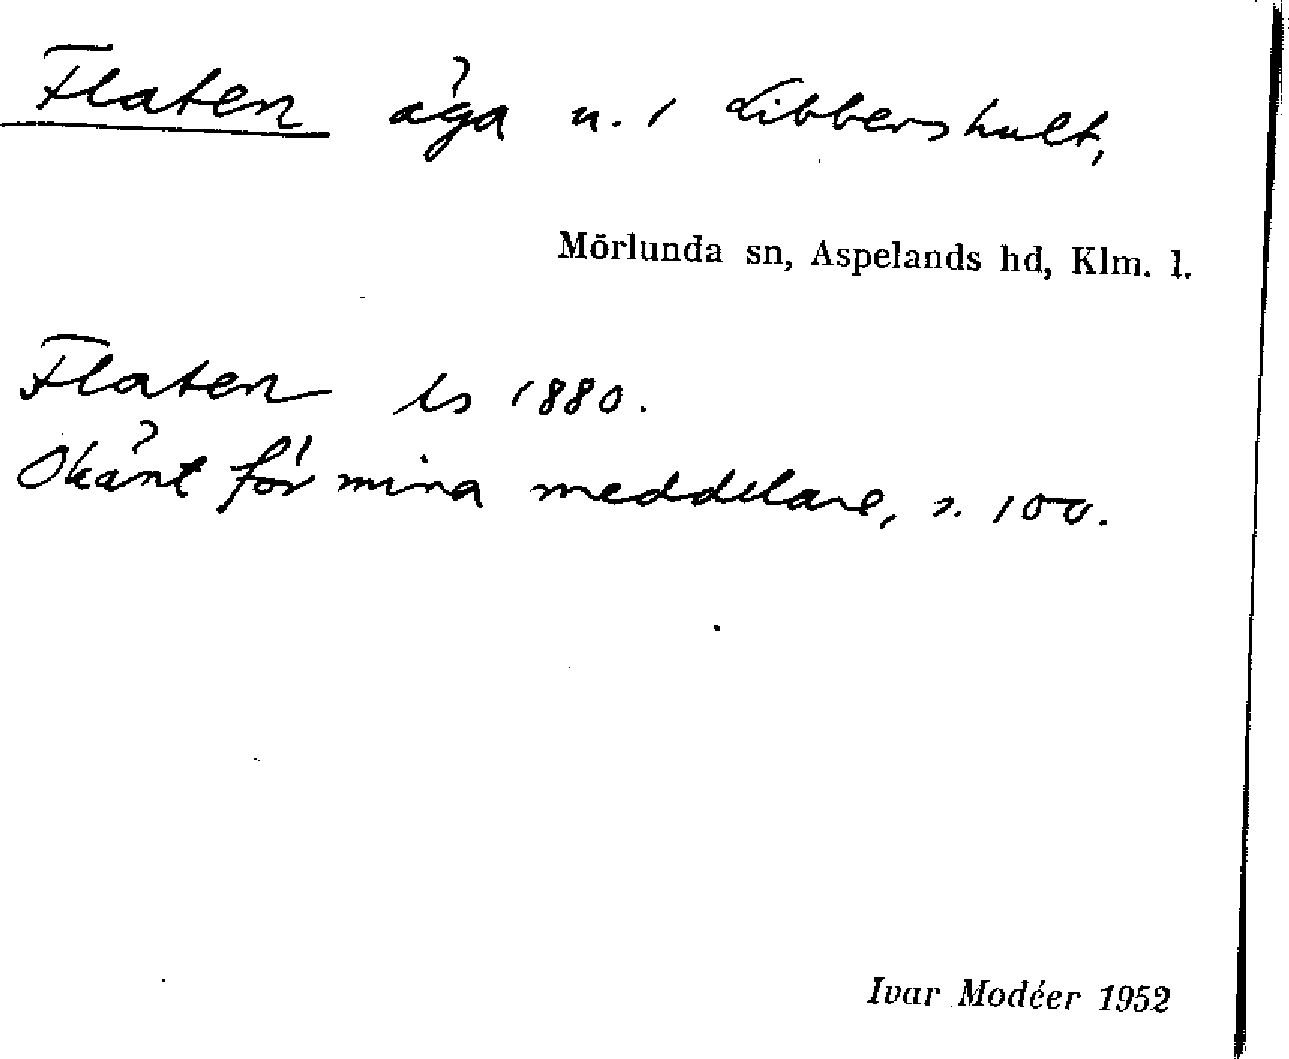 Flaten äga u. / Libbershult,
Mörlunda sn, Aspelands hd, Klm. l.
Flaten ls 1880.
Okänt för mina meddelare, s. 100.
Ivar Modéer 1952